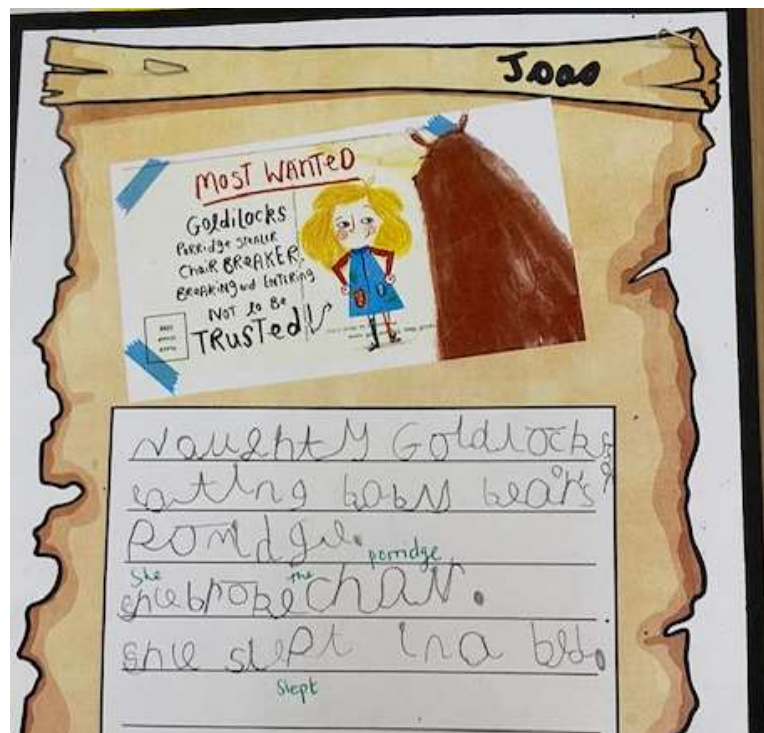 Joao
MOST WANTED
GoldiLocks
PoRRidge StEALER
ChaiR BREAKER
BREAKING and ENTERING
NOT to Be
TRUSTed!
Naughty Goldlocks
eating baby bears
porridge
She the
she broke chair.
she slept in a bed.
Slept